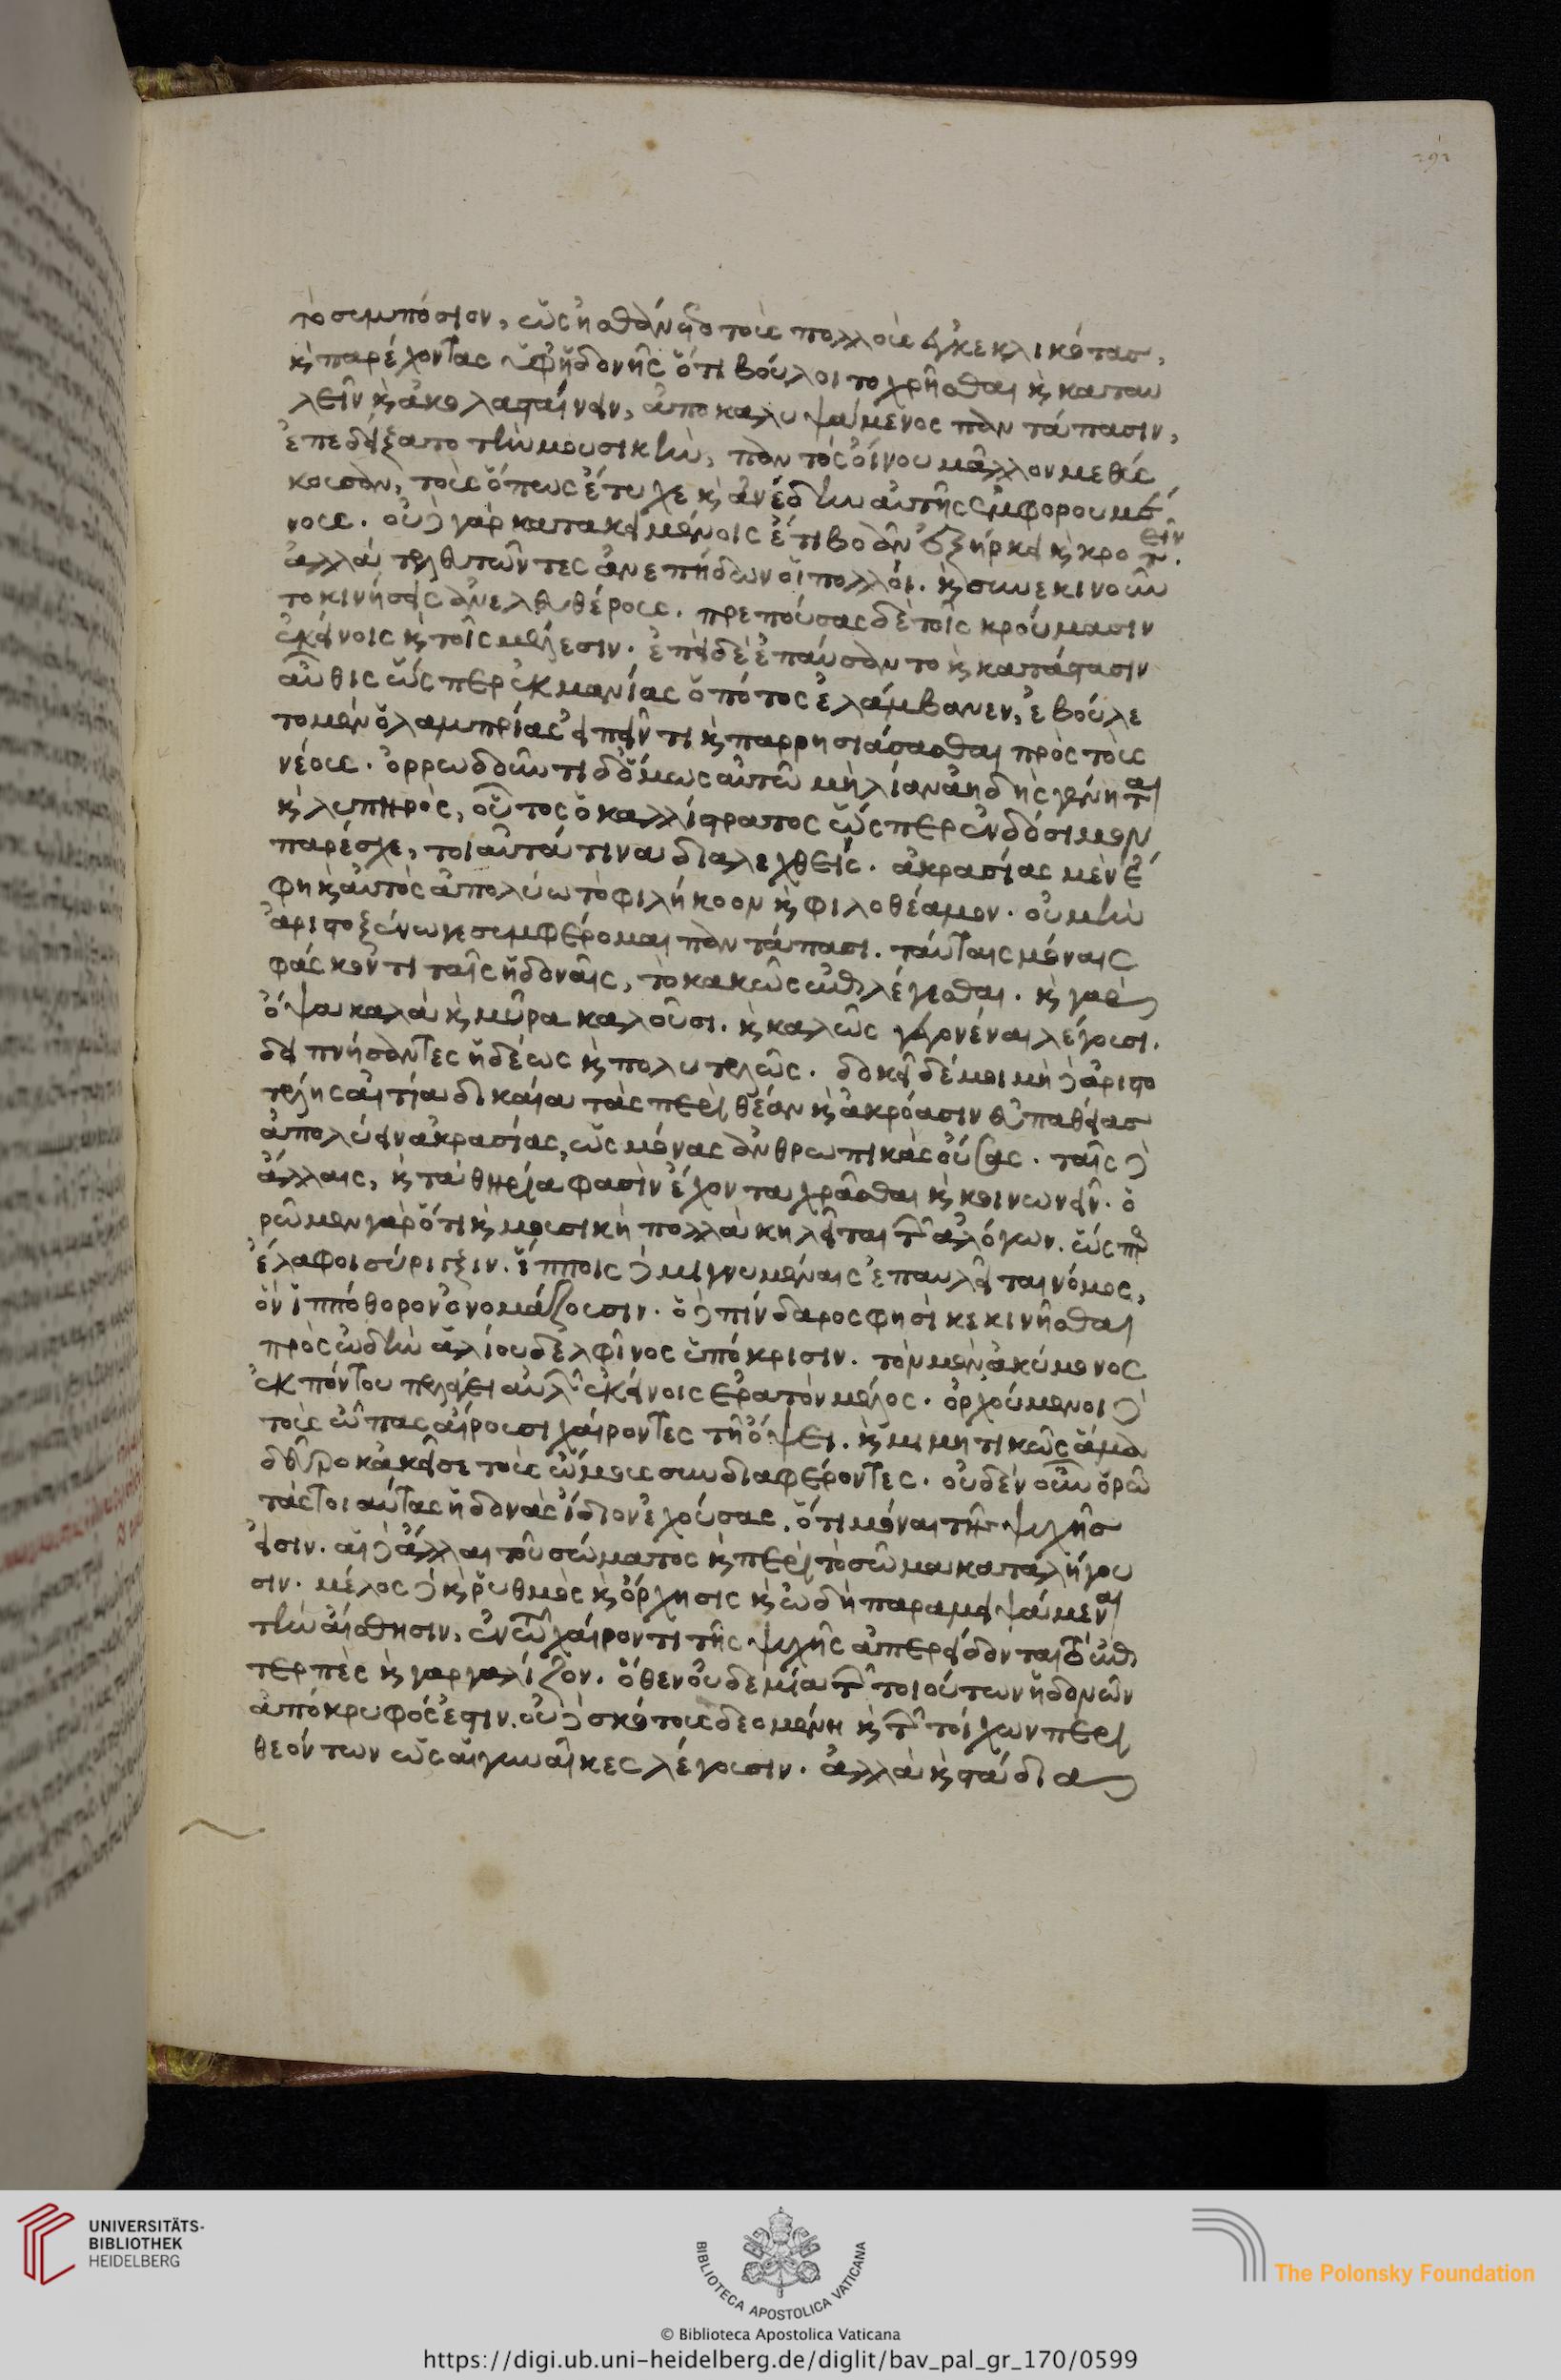 τὸ συμπόσιον, ὡς ᾐσθάνετο τοὺς πολλοὺς ἐγκεκλικότας,
καὶ παρέχοντας ὑφ' ἡδονῆς ὅτι βούλοιτο χρῆσθαι καὶ καταυ
λεῖν καὶ ἀκολασταίνειν, ἀποκαλυψάμενος παντάπασιν,
ἐπεδείξατο τὴν μουσικὴν, παντὸς οἴνου μᾶλλον μεθύς
κουσαν, τοὺς ὅπως ἔτυχε καὶ ἀνέδην αὐτῆς ἐμφορουμέ
νους. οὐδὲ γὰρ κατακειμένοις ἔτι βοᾶν ἐξήρκει καὶ κροτεῖν.
ἀλλὰ τελευτῶντες ἀνεπήδων οἱ πολλοί. καὶ συνεκινοῦν
το κινήσεις ἀνελευθέρους. πρεπούσας δὲ τοῖς κρούμασιν
ἐκείνοις καὶ τοῖς μέλεσιν. ἐπεὶ δὲ ἐπαύσαντο καὶ κατάστασιν
αὖθις ὥσπερ ἐκ μανίας ὁ πότος ἐλάμβανεν, ἐβούλε
το μὲν ὁ λαμπρίας εἰπεῖν τι καὶ παρρησιάσασθαι πρὸς τοὺς
νέους. ὀρρωδοῦντι δ' ὅμως αὐτῶ μὴ λίαν ἀηδὴς γένηται
καὶ λυπηρὸς, οὗτος ὁ καλλίστρατος ὥσπερ ἐνδόσιμον
παρέσχε, τοιαῦτά τινα διαλεχθείς. ἀκρασίας μὲν ἔ
φη καὶ αὐτὸς ἀπολύω τὸ φιλήκοον καὶ φιλοθέαμον. οὐ μὴν
ἀριστοξένω γε συμφέρομαι παντάπασι. ταύταις μόναις
φάσκοντι ταῖς ἡδοναῖς, τὸ κακῶς ἐπιλέγεσθαι. καὶ γὰρ
ὄψα καλὰ καὶ μῦρα καλοῦσι. καὶ καλῶς γεγονέναι λέγουσι.
δειπνήσαντες ἡδέως καὶ πολυτελῶς. δοκεῖ δέ μοι μὴ δὲ ἀριστο
τέλης αἰτία δικαία τὰς περὶ θέαν καὶ ἀκρόασιν εὐπαθείας
ἀπολύειν ἀκρασίας, ὡς μόνας ἀνθρωπικὰς οὔσας. ταῖς δὲ
ἄλλαις, καὶ τὰ θηρία φασὶν ἔχοντα χρᾶσθαι καὶ κοινωνεῖν. ὁ
ρῶμεν γὰρ ὅτι καὶ μουσικῆ πολλὰ κηλεῖται τῶν ἀλόγων. ὥσπερ
ἔλαφοι σύριγξιν. ἵπποις δὲ μιγνυμέναις ἐπαυλεῖται νόμος,
ὃν ἱππόθορον ὀνομάζουσιν. ὁ δὲ πίνδαρος φησὶ κεκινῆσθαι
πρὸς ὠδὴν ἁλίου δελφῖνος ὑπόκρισιν. τὸν μὲν ἀκύμονος
ἐκ πόντου πελάγει αὐλῶν ἐκείνοις ἐρατὸν μέλος. ὀρχούμενοι δὲ
τοὺς ὦπας αἴρουσι χαίροντες τῆ ὄψει. καὶ μιμητικῶς ἅμα
δεῦρο κἀκεῖσε τοὺς ὤμους συνδιαφέροντες. οὐδὲν οὖν ὁρῶ
τὰς τοιαύτας ἡδονὰς ἴδιον ἐχούσας. ὅτι μόναι τῆς ψυχῆς
εἰσιν. αἱ δὲ ἄλλαι τοῦ σώματος καὶ περὶ τὸ σῶμα καταλήγου
σιν. μέλος δὲ καὶ ῥυθμὸς καὶ ὄρχησις καὶ ὠδὴ παραμειψάμεναι
τὴν αἴσθησιν, ἐν τῶ χαίροντι τῆς ψυχῆς ἀπερείδονται τὸ ἐπι
τερπὲς καὶ γαργαλίζον. ὅθεν οὐδεμία τῶν τοιούτων ἡδονῶν
ἀπόκρυφός ἐστιν. οὐδὲ σκότους δεομένη καὶ τῶν τοίχων περι
θεόντων ὡς αἱ γυναῖκες λέγουσιν. ἀλλὰ καὶ στάδια
UNIVERSITÄTS-
BIBLIOTHEK
HEIDELBERG
BIBLIOTECA APOSTOLICA VATICANA
The Polonsky Foundation
© Biblioteca Apostolica Vaticana
https://digi.ub.uni-heidelberg.de/diglit/bav_pal_gr_170/0599